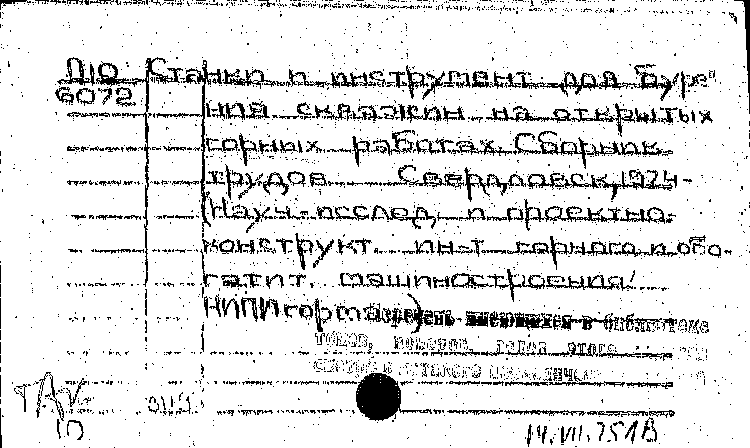 П10 Станки и инструмент для буре-
6072
ния скважин на открытых
горных работах. Сборник
трудов. Свердловск, 1974-
(Науч.-исслед. и проектно-
конструкт. ин-т горного и обо-
гатит. машиностроения
НИПИгормаш)
Перечень имеющихся в библиотеке
томов, номеров, годов этого
14.VII.75